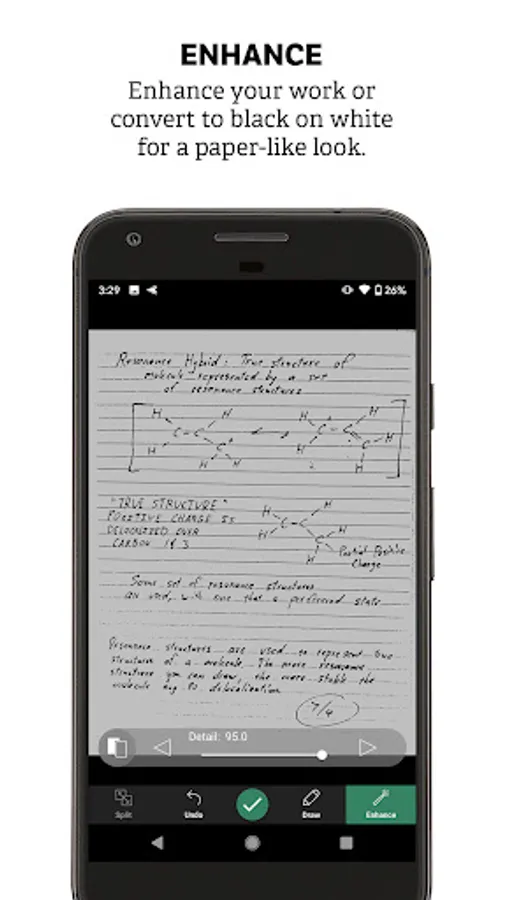 ENHANCE
Enhance your work or
convert to black on white
for a paper-like look.
3:29
26%
Resonance Hybrid: True structure of
molecule represented by a set
of resonance structures
H H H H
C = C C = C
H C H C H
H H H
"TRUE STRUCTURE"
POSITIVE CHARGE IS
DELOCALIZED OVER
CARBON 1 & 3
H H
C C
H C H
H
Partial Positive
Charge
Some set of resonance structures
are used, with one that a preferred state
Resonance structures are used to represent true
structure of a molecule. The more resonance
structures you can draw, the more stable the
molecule delocalization
7/4
Detail: 95.0
Split
Undo
Draw
Enhance